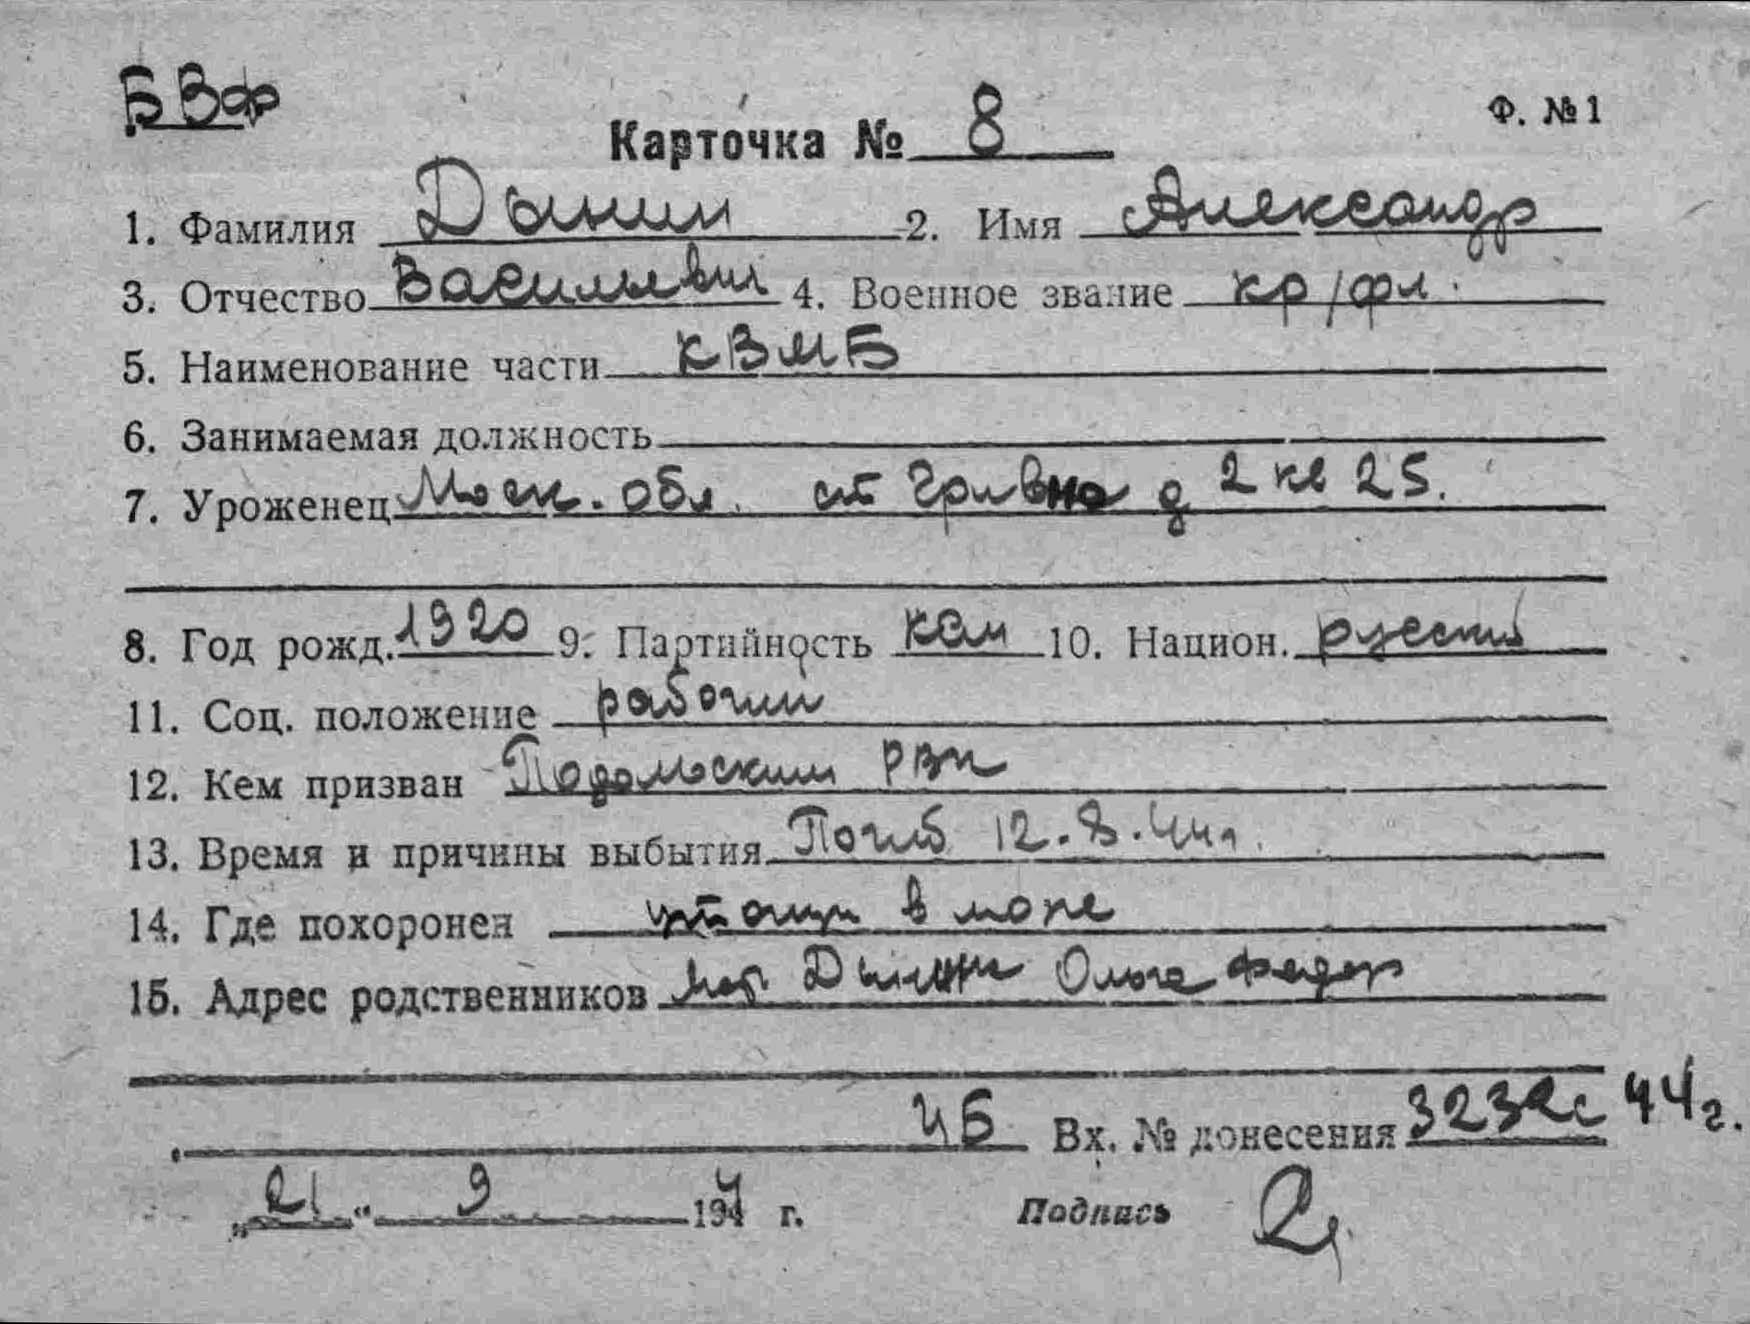 БВФ
Ф. №1
Карточка № 8
1. Фамилия Дынин 2. Имя Александр
3. Отчество Васильевич 4. Военное звание кр/фл.
5. Наименование части КВМБ
6. Занимаемая должность
7. Уроженец Моск. обл. ст Гривно д 2 кв 25.
8. Год рожд. 1920 9. Партийность ксм 10. Национ. русский
11. Соц. положение рабочий
12. Кем призван Подольским РВК
13. Время и причины выбытия Погиб 12.8.44г.
14. Где похоронен в море
15. Адрес родственников Дынина Ольга Федор
ИБ Вх. № донесения 44г.
„21“ 9 1944 г. Подпись